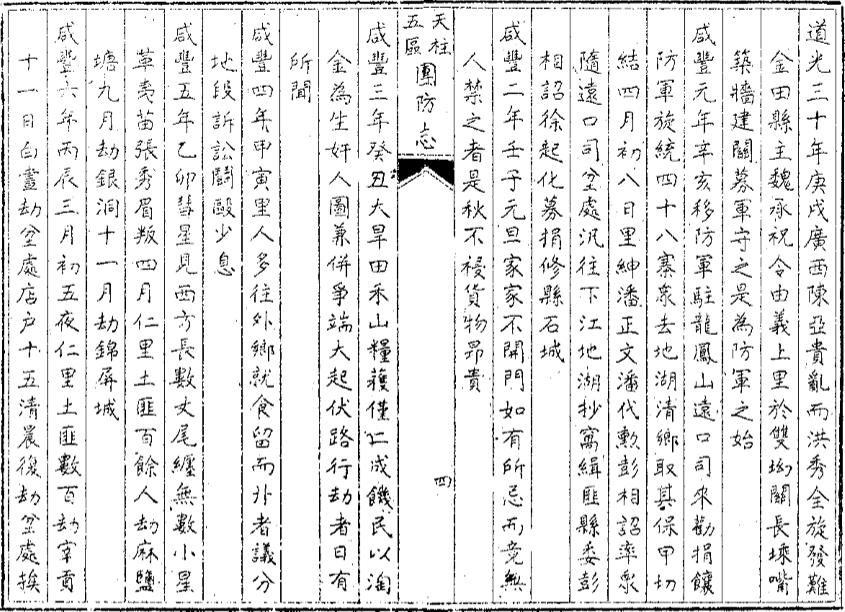 道光三十年庚戌廣西陳亞貴亂而洪秀全旋發難
金田縣主魏承祝令由義上里於雙坳關長塛嘴
築牆建關募軍守之是為防軍之始
咸豐元年辛亥移防軍駐龍鳳山遠口司來勸捐饟
防軍旋統四十八寨眾去地湖清鄉取其保甲切
結四月初八日里紳潘正文潘代勲彭相詔率眾
隨遠口司坌處汛往下江地湖抄窩緝匪縣委彭
相詔徐起化募捐修縣石城
咸豐二年壬子元旦家家不開門如有所忌而竟無
人禁之者是秋不稔貨物昂貴
天柱五區團防志
四
咸豐三年癸丑大旱田禾山糧穫僅二成饑民以淘
金為生奸人圖兼併爭端大起伏路行劫者日有
所聞
咸豐四年甲寅里人多往外鄉就食留而外者議分
地段訴訟鬪毆少息
咸豐五年乙卯彗星見西方長數丈尾纏無數小星
革夷苗張秀眉叛四月仁里土匪百餘人劫麻鹽
塘九月劫銀洞十一月劫錦屏城
咸豐六年丙辰三月初五夜仁里土匪數百劫宰貢
十一日白晝劫坌處店户十五清晨後劫坌處挨